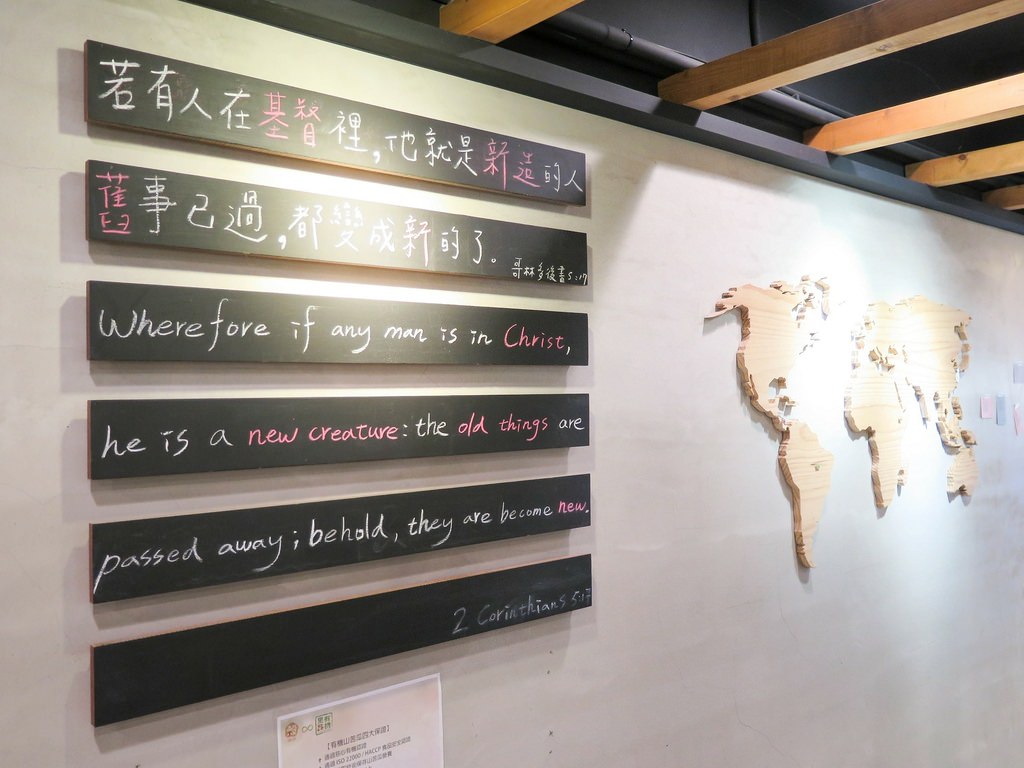 若有人在基督裡,他就是新造的人
舊事已過,都變成新的了。
哥林多後書5:17
Wherefore if any man is in Christ,
he is a new creature: the old things are
passed away; behold, they are become new.
2 Corinthians 5:17
【有機山苦瓜四大保證】
ISO 22000 / HACCP 食品安全認證